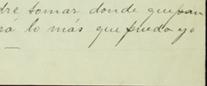 dré tomar donde quepan
rá lo más que pueda yo